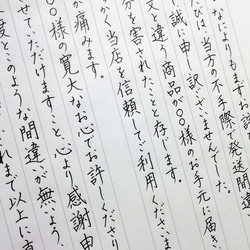 なによりもまず
は、当方の不手際で発送間違
誠に申し訳ございませんでした。
文と違う商品が〇〇様のお手元に届き、
分を害されたことと存じます。
かく当店を信頼してご利用くださ
が痛みます。
〇様の寛大なお心でお許しくださり
せていただけますこと、心より感謝申
度とこのような間違いが無いよう、
れまで以上に